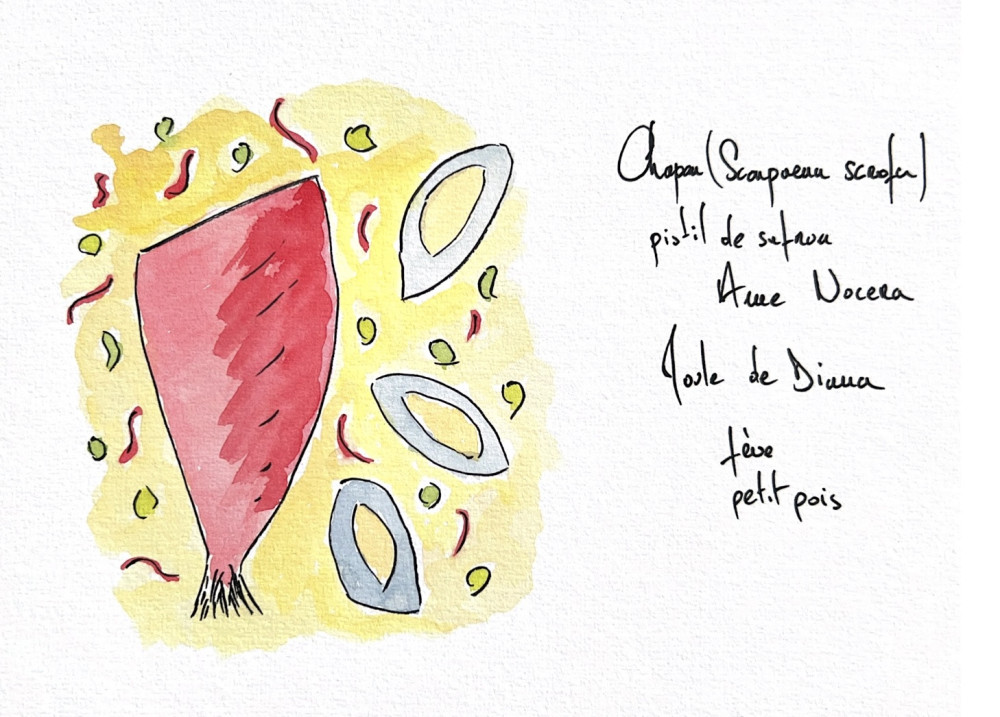 Chapon (Scorpaena scrofa)
pistil de safran
Anne Nocera
Moule de Diana
fève
petit pois